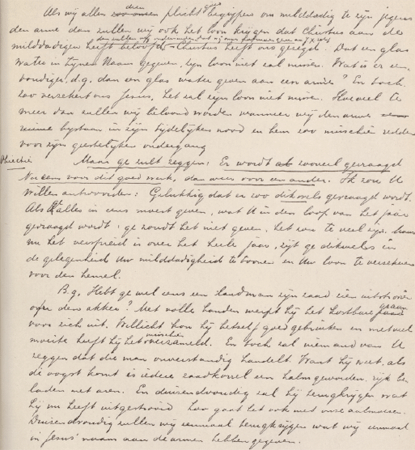 Als wij allen dien plicht begrijpen om milddadig te zijn jegens
den arme dan zullen wij ook het loon krijgen dat Christus aan de
milddadigen heeft beloofd. Christus heeft ons gezegd. Dat een glas
water in zijnen Naam gegeven, zijn loon niet zal missen. Wat is er een-
voudiger, d.g. dan een glas water geven aan een arme? En toch
zoo verzekert ons Jesus, het zal zijn loon niet missen. Hoeveel te
meer dan zullen wij beloond worden wanneer wij den arme
bijstaan in zijn tijdelijken nood en hem zoo misschien redden
voor zijn geestelijken ondergang
Maar ge zult zeggen: Er wordt zooveel gevraagd
Nu eens voor dit goed werk, dan weer voor een ander. Ik zou U
willen antwoorden: Gelukkig dat er zoo dikwels gevraagd wordt.
Als U alles in eens moest geven, wat U in den loop van het jaar
gevraagd wordt, ge zoudt het niet geven, het was te veel ijn
nu het verspreid is over het heele jaar, zijt ge dikwels in
de gelegenheid Uw milddadigheid te toonen en Uw loon te verzekeren
voor den hemel.
B.g. Hebt ge wel eens een landman zijn zaad zien uitstrooien
over den akker? Met volle handen werpt hij het kostbare graan
voor zich uit. Wellicht kon hij hetzelf goed gebruiken en met veel
moeite heeft hij het verzameld. En toch zal niemand van U
zeggen dat die man onverstandig handelt. Want hij weet, als
de oogst komt is iedere zaadkorrel een halm geworden, rijk be-
laden met aren. En duizendvoudig zal hij terugkrijgen wat
hij nu heeft uitgestrooid. Zoo gaat het ook met onze aalmoezen.
Duizendvoudig zullen wij eenmaal terugkrijgen wat wij eenmaal
in Jesus' naam aan de armen hebben gegeven.